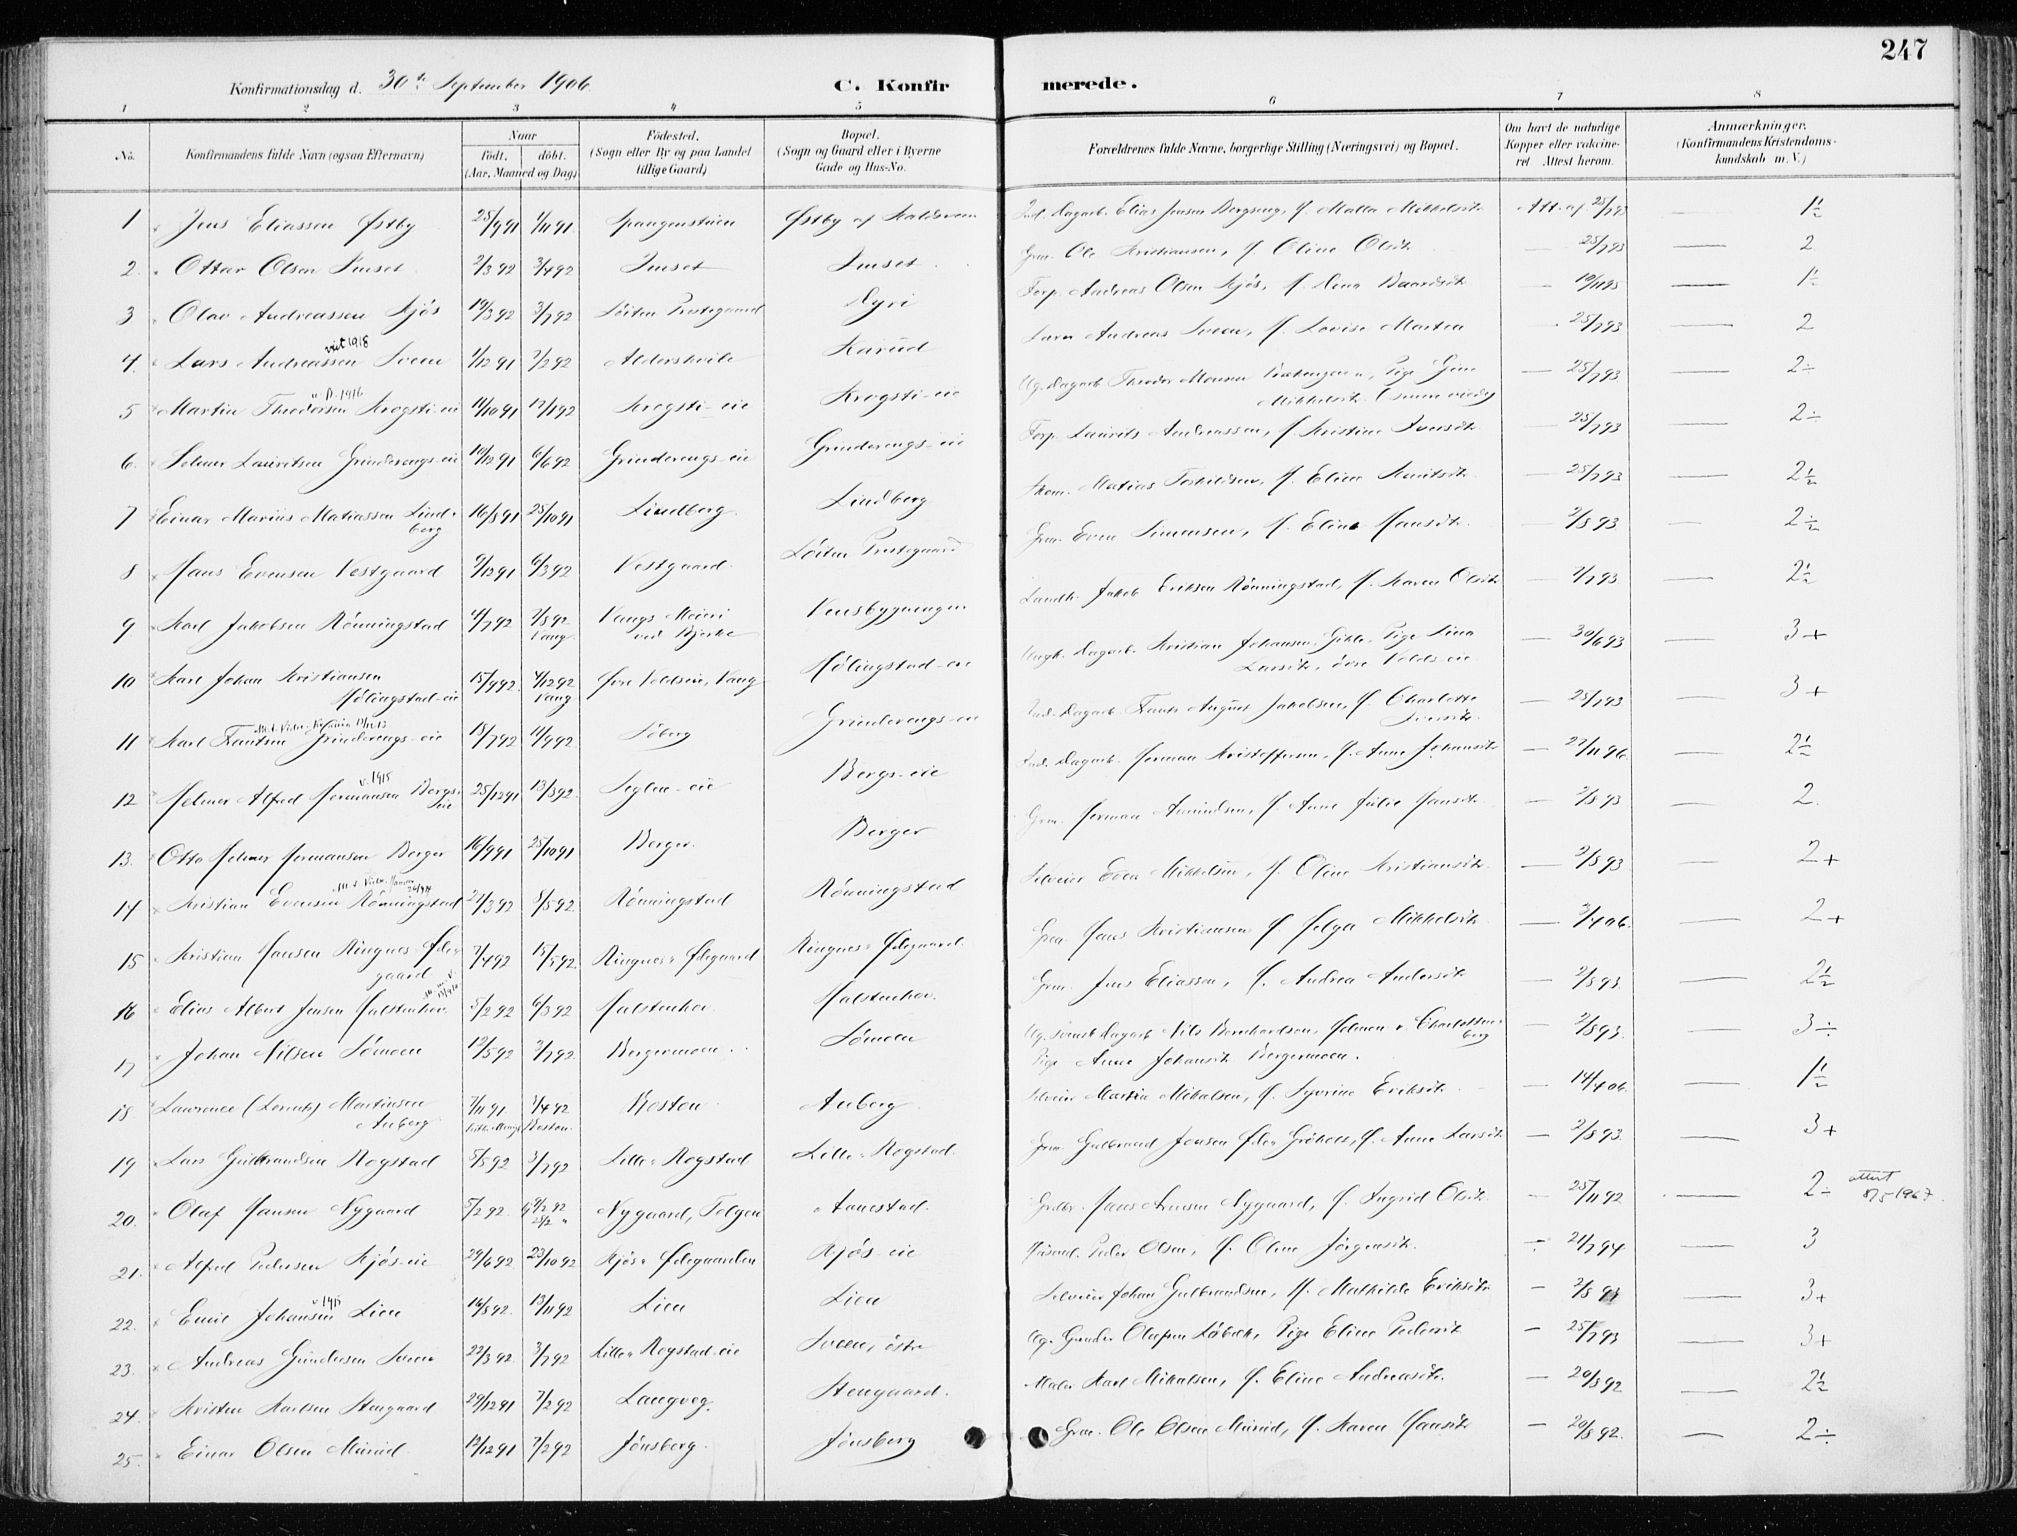 247
Konfirmationsdag d. 30te September 1906. C. Konfir merede.
1 2 3 4 5 6 7 8
No. Konfirmandens fulde Navn (ogsaa Efternavn) Naar födt. döbt. (Aar, Maaned og Dag) Födested. (Sogn eller By og paa Landet tillige Gaard) Bopæl. (Sogn og Gaard eller i Byerne Gade og Hus-No. Forældrenes fulde Navne, borgerlige Stilling (Næringsvei) og Bopæl. Om havt de naturlige Kopper eller vakcineret Attest herom. Anmærkninger. (Konfirmandens Kristendomskundskab m. V.)
1 Jens Eliassen Østby 25/9 91 1/11 91 Spangenstuen Østby af Ind. Dagarb. Elias Jensen Bergseng, H. Malla Mikkelsdt. Att. af 25/7 93 — 1½
2. Ottar Olsen Imset 2/3 92 3/4 92 Imset Imset Grm. Ole Kristiansen, H. Oline Olsdt. — 25/7 93 — 2
3 Olav Andreassen Kjös 19/3 92 3/7 92 Löiten Prestegaard Dyri Forp. Andreas Olsen Kjös, H. Lina Baardsdt. — 19/11 95 — 1½
viet 1918
4. Lars Andreassen Sveen 1/12 91 7/2 92 Alderslvile Karud Andreas Sveen, H. Lovise Martea — 25/7 93 — 2
v. D. 1916
5 Martin Theodorsen Krogsti-eie 11/10 91 17/1 92 Krogsti-eie Krogsti-eie Ug. Dagarb. Theodor Monsen, Pige Gina Mikkelsdt. — 25/7 93 — 2÷
6. Helmer Lauritsen Grinderengs-eie 10/12 91 6/6 92 Grinderengs-eie Grinderengs-eie Forp. Laurits Andreassen, H. Kristine Iversdt. — 25/7 93 — 2÷
7 Einar Marius Matiassen Lindberg 16/8 91 25/10 91 Lindberg. Lindberg Skom. Matias Torkildsen, H. Eline Knutsdt. — 25/7 93 — 2½
8 Hans Evensen Vestgaard 9/12 91 6/3 92 Vestgaard. Löiten Prestegaard Grm. Even Simensen, H. Eline Hansdt. — 2/8 93 — 2÷
9 Karl Jakobsen Rönningstad 4/7 92 7/8 92 Vang Vangs Meieri ved Bjerke Vensbygningen Landh. Jakob Eriksen Rönningstad, H. Karen Olsdt. — 1/7 93 — 2½
10 Karl Johan Kristiansen Hölingstad-eie 15/9 92 4/12 92 Vang Øvre Voldseie, Vang Hölingstad-eie Ungk. Dagarb. Kristian Johansen, Pige Lina Larsdt. övre Volds-eie — 30/6 93 — 3+
11 Karl Frantsen Grinderengs-eie 18/7 92 11/9 92 Söberg Grinderengs-eie Ind. Dagarb. Frants August Jakobsen, H. Charlotte Iversdt. — 25/7 93 — 3+
v. 1915
12 Helmer Alfred Hermansen Bergs-eie 25/12 91 13/3 92. Seglen-eie Bergs-eie Ind. Dagarb. Herman Kristoffersen, H. Anne Johansdt. — 27/11 96. — 2½
13. Otto Helmer Hermansen Berger 16/9 91 25/10 91 Berger. Berger Grm. Herman Amundsen, H. Anne Julie Hansdt. — 2/8 93 — 2.
14 Kristian Evensen Rönningstad 24/3 92 8/5 92 Rönningstad Rönningstad Selveier Even Mikkelsen, H. Oline Kristiansdt. — 2/8 93 — 2+
15 Kristian Hansen Ringnes-Ødegaard 7/4 92 15/5 92 Ringnes-Ødegaard Ringnes-Ødegaard. Grm. Hans Kristiansen H. Helga Mikkelsdt. — 3/4 06. — 2+
16 Elias Albert Jensen Halstenhov. 5/2 92 6/3 92 Halstenhov. Halstenhov. Grm. Jens Eliassen, H. Andrea Andersdt. — 2/8 93. — 2½
17 Johan Nilsen Sömoen 12/5 92 3/7 92 Bergermoen Sömoen Ug. svensk Dagarb. Nils Bernhardsen, Holmen v Charlottenberg Pige Anne Johansdt. Bergermoen. — 2/8 93. — 3÷
18 Lawrence (Lorents) Martinsen Auberg 7/11 91 3/4 92 Boston. Boston Auberg Selveier Martin Mikalsen, H. Syverine Eriksdt. — 14/4 06. — 1½
19 Lars Gulbrandsen Rogstad 5/5 92 3/7 92 Lille-Rogstad Lille-Rogstad. Grm. Gulbrand Jensen H. Anne Larsdt. — 2/8 93. — 3+
20. Olaf Hansen Nygaard 5/2 92. Nygaard, Tolgen Aanestad. Hans Arnesen Nygaard, H. Ingrid Olsdt. — 25/11 92 — 2÷ attest 8/5 1967.
21. Alfred Pedersen Kjös-eie 29/6 92 23/10 92 Kjös-Ødegaarden Kjös-eie Husmd. Peder Olsen, H. Oline Jörgensdt. — 21/7 94 — 3
v 1915
22. Emil Johansen Lien 14/8 92. 13/11 92 Lien Lien Selveier Johan Gulbrandsen, H. Mathilde Eriksdt. — 2/8 93 — 3+
23. Andreas Gundersen Sveen 22/3 92. 3/7 92 Lille-Rogstad-eie Sveen, östre Ug. Gunder Olafsen Löbæk, Pige Eline Pedersdt. — 25/7 93 — 3+
24. Kristen Karlsen Stengaard 29/12 91 7/2 92 Langveg. Stengaard. Maler Karl Mikalsen, H. Eline Andreasdt. — 20/8 92 — 2½
25. Einar Olsen Mürud. 12/12 91 7/2 92 Jönsberg. Jönsberg Grm. Ole Olsen Mürud, H. Karen Hansdt. — 20/8 92. — 2÷